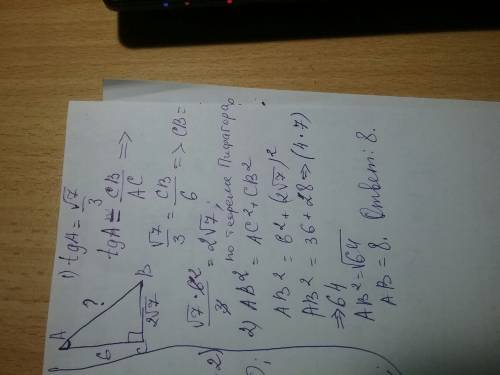 1) tgA = √7/3
tgA = CB/AC =>
√7/3 = CB/6 => CB =
√7·6²/3 = 2√7;
по теореме Пифагора:
2) AB² = AC² + CB²
AB² = 6² + (2√7)²
AB² = 36 + 28 => (4·7)
=> 64
AB² = √64
AB = 8. Ответ: 8.
A
?
6
C
B
2√7
2)